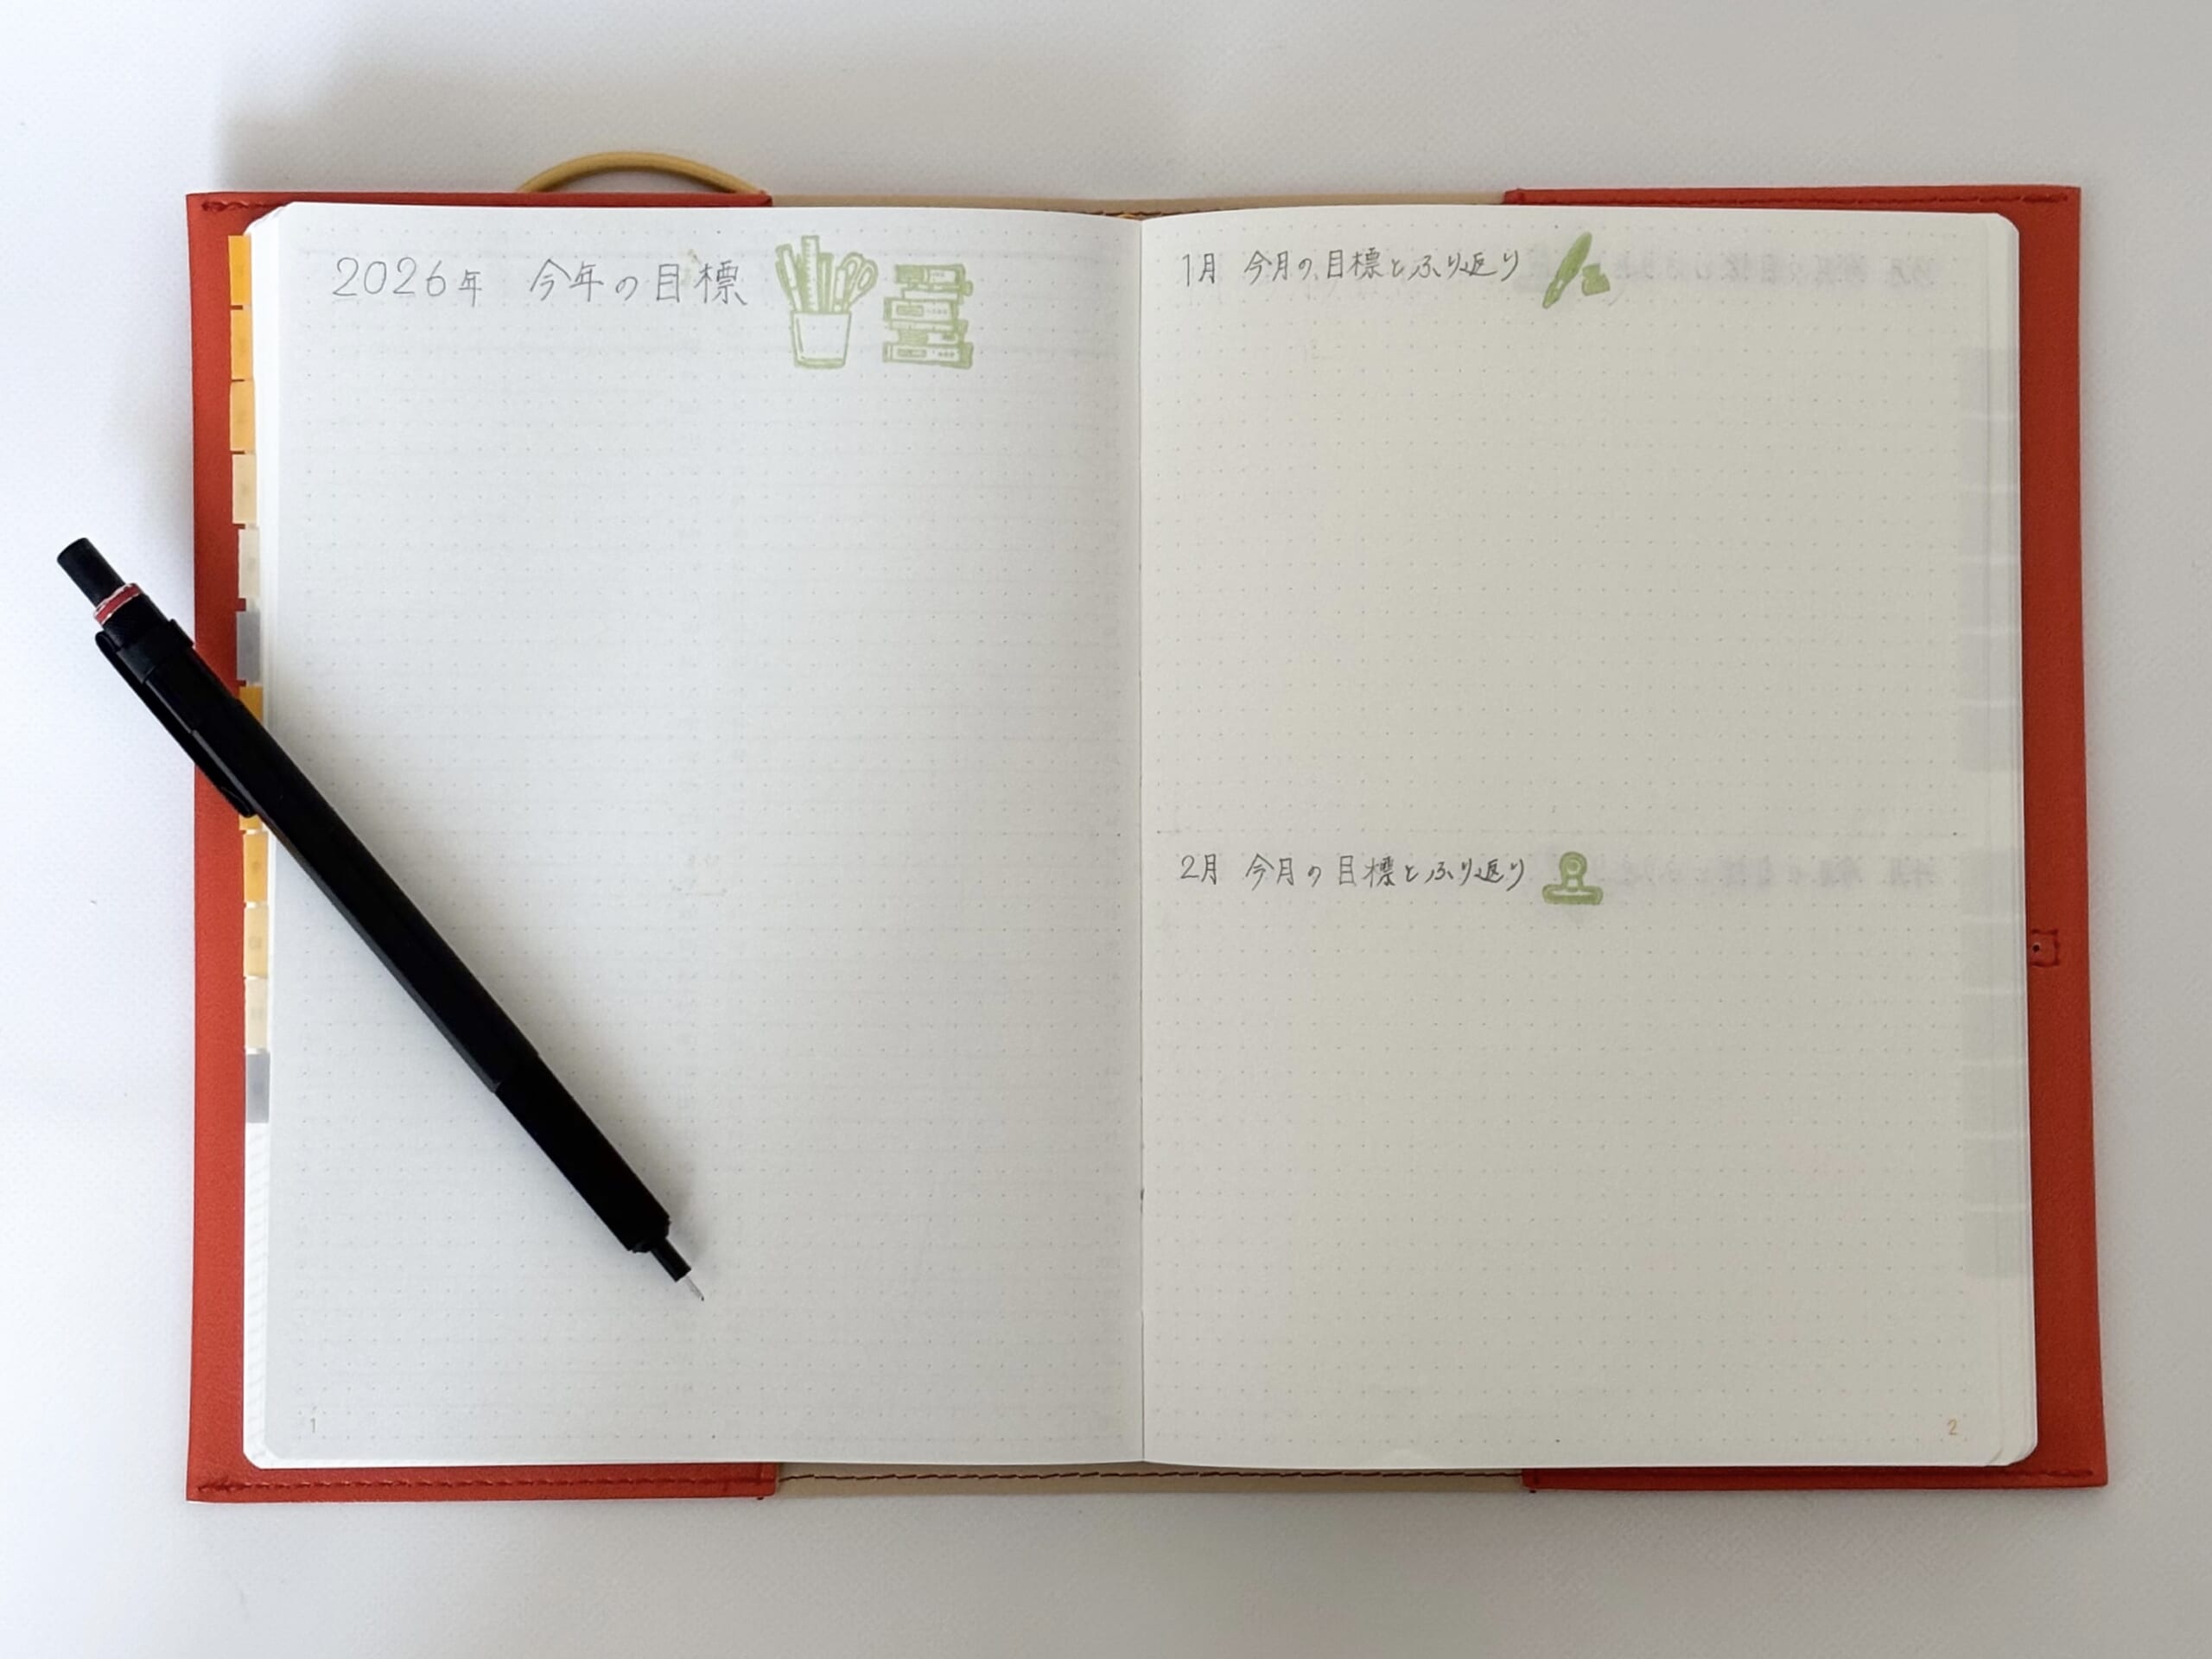 2026年 今年の目標
1月 今月の目標とふり返り
2月 今月の目標とふり返り
1
2